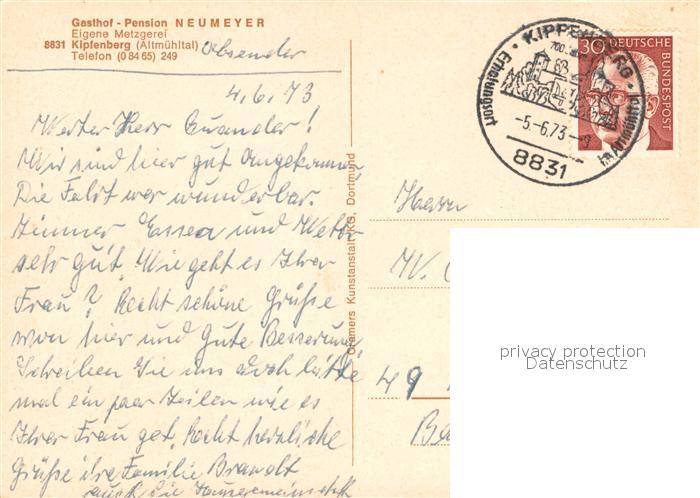 Gasthof - Pension NEUMEYER
Eigene Metzgerei
8831 Kipfenberg (Altmühltal)
Telefon (0 84 65) 249
Absender
4.6.73
Werter Herr
Wir sind hier gut angekommen
Die Fahrt war wunderbar.
Zimmer Essen und Wetter
sehr gut. Wie geht es Ihrer
Frau? Recht schöne Grüße
von hier und Gute Besserung
Schreiben Sie uns doch bitte
mal ein paar Zeilen wie es
Ihrer Frau get. Recht herzliche
Grüße ihre Familie Brandt
auch die
Cramers Kunstanstalt KG, Dortmund
KIPFENBERG
700
Erholungsort
im Altmühltal
-5.-6.73-9
8831
30
DEUTSCHE
BUNDESPOST
Herrn
W.
49
privacy protection
Datenschutz